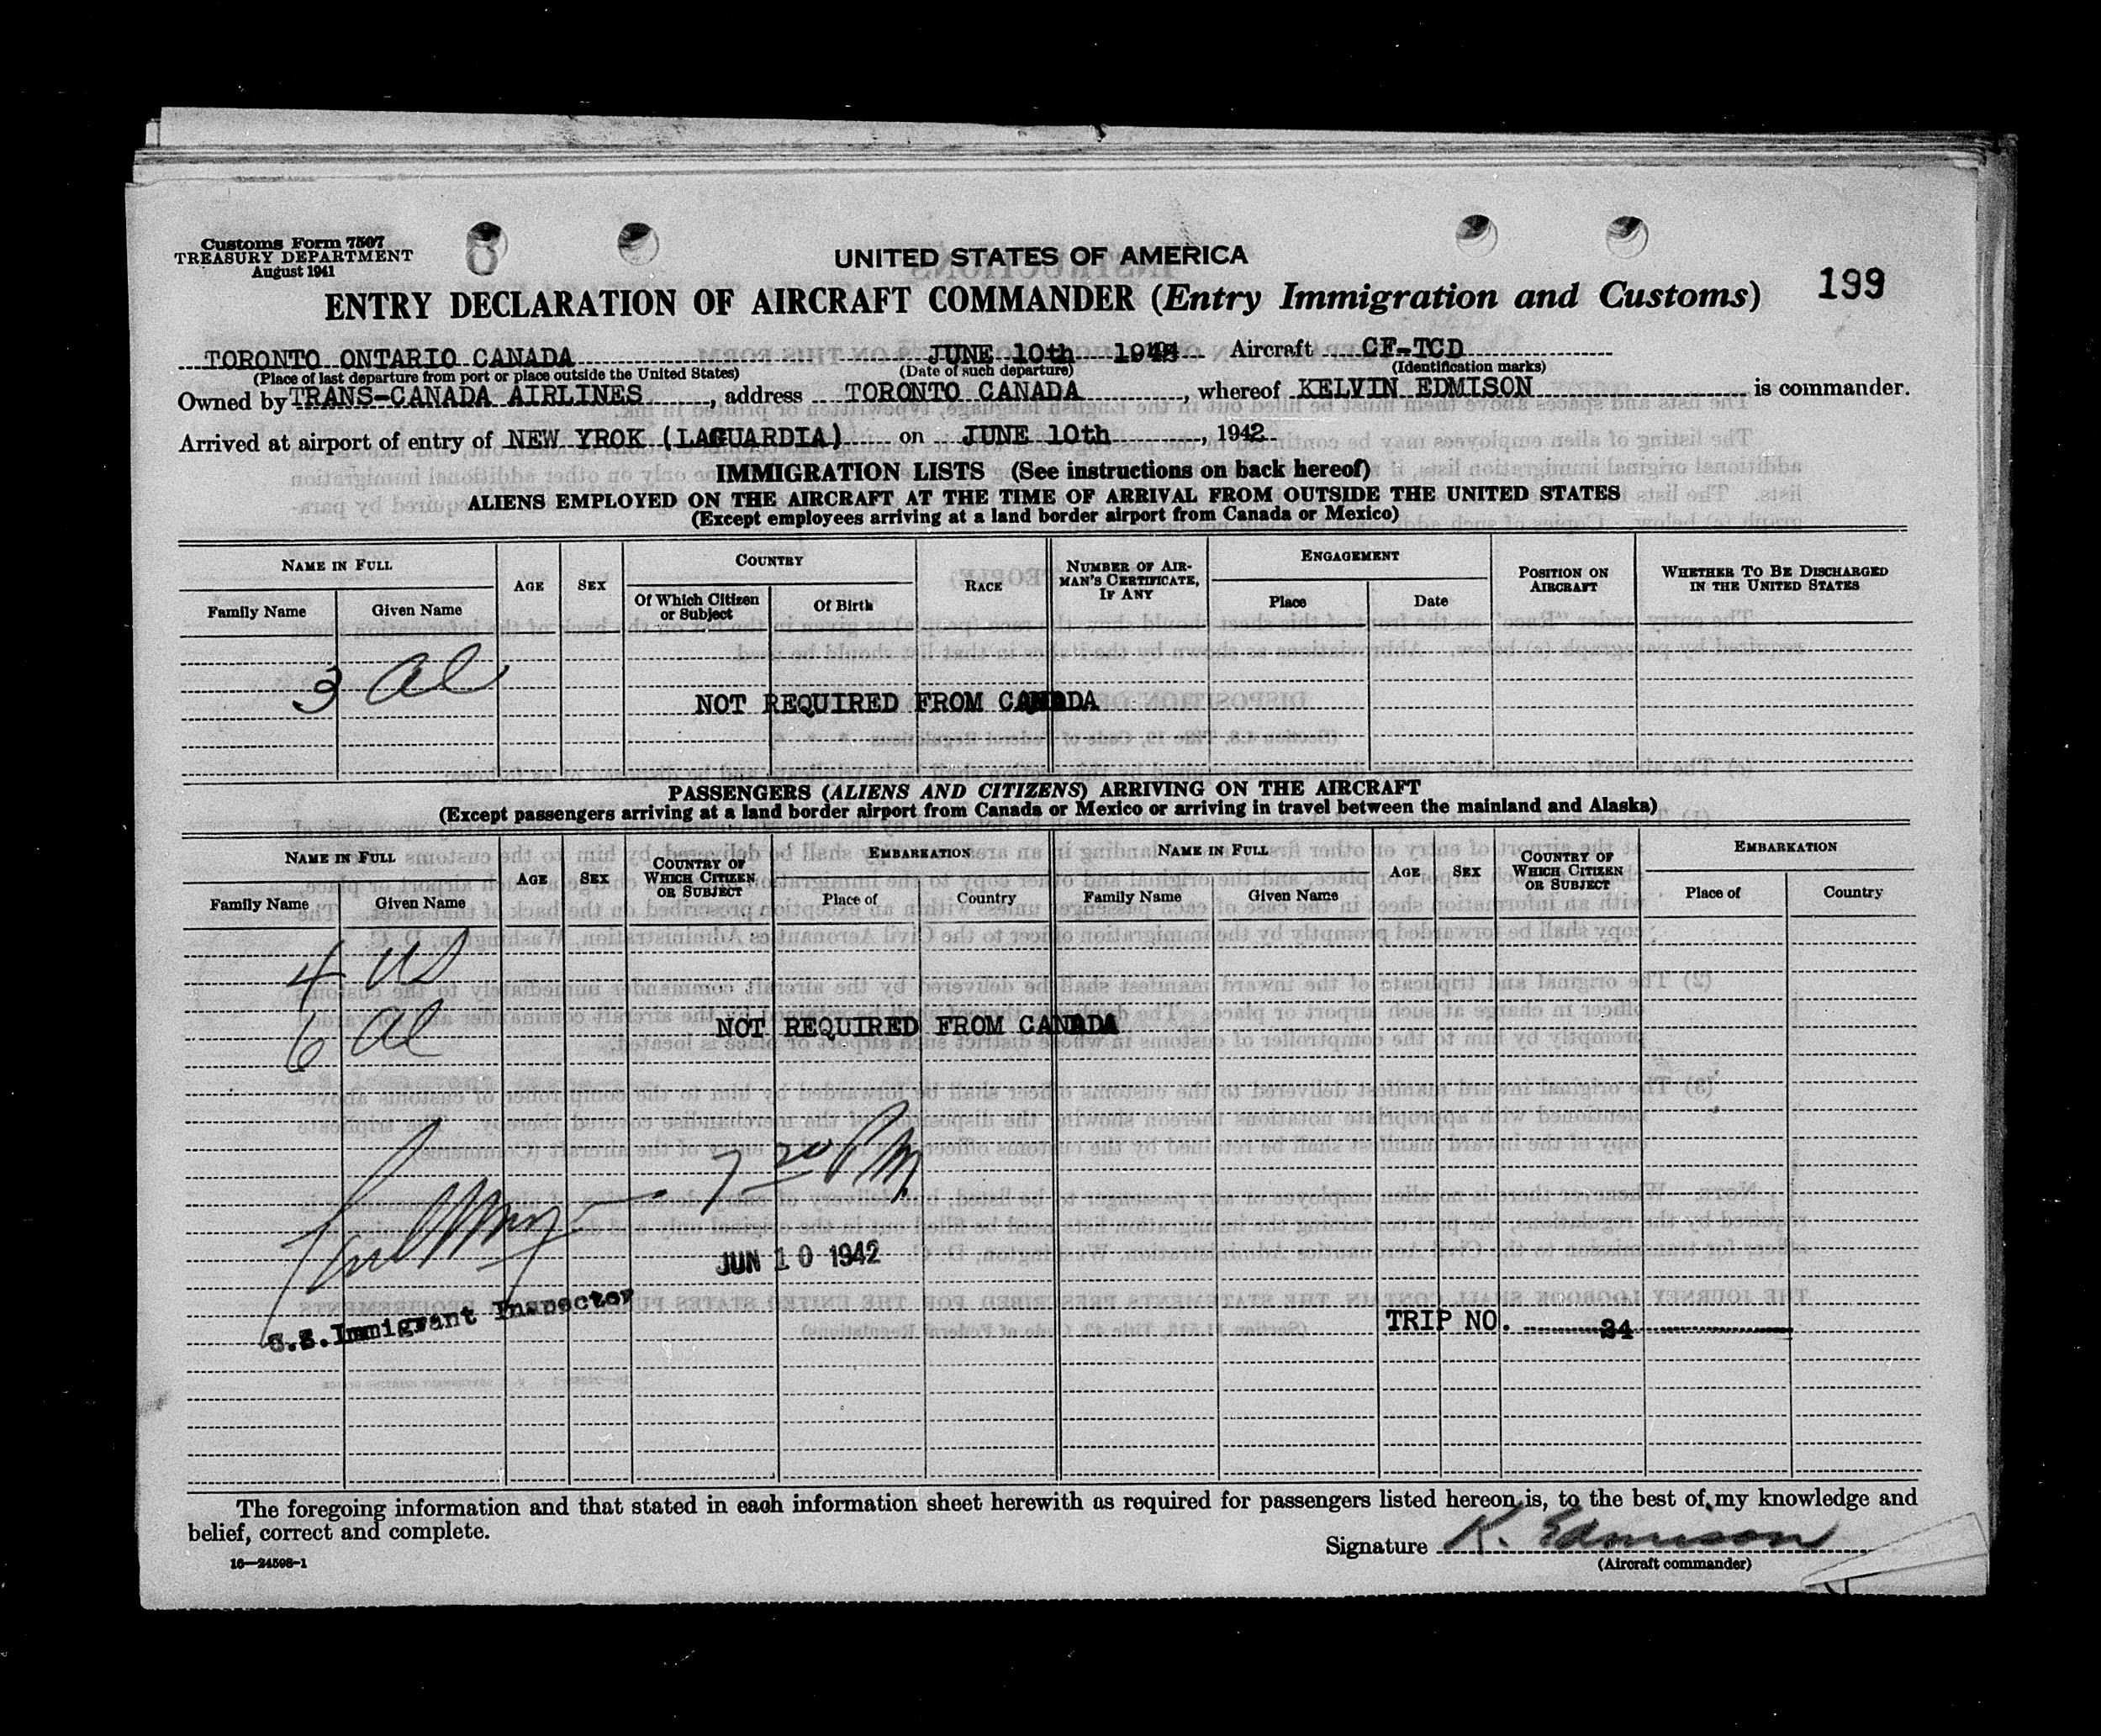 Customs Form 7507
TREASURY DEPARTMENT
August 1941
8
UNITED STATES OF AMERICA
199
ENTRY DECLARATION OF AIRCRAFT COMMANDER (Entry Immigration and Customs)
TORONTO ONTARIO CANADA JUNE 10th Aircraft CF-TCD
(Place of last departure from port or place outside the United States) (Date of such departure) (Identification marks)
Owned by TRANS-CANADA AIRLINES, address TORONTO CANADA, whereof KELVIN EDMISON is commander.
Arrived at airport of entry of NEW YROK (LAGUARDIA) on JUNE 10th, 1942
IMMIGRATION LISTS (See instructions on back hereof)
ALIENS EMPLOYED ON THE AIRCRAFT AT THE TIME OF ARRIVAL FROM OUTSIDE THE UNITED STATES
(Except employees arriving at a land border airport from Canada or Mexico)
NAME IN FULL AGE SEX COUNTRY RACE NUMBER OF AIRMAN'S CERTIFICATE, IF ANY ENGAGEMENT POSITION ON AIRCRAFT WHETHER TO BE DISCHARGED IN THE UNITED STATES
Family Name Given Name Of Which Citizen or Subject Of Birth Place Date
3 al
NOT REQUIRED FROM CANADA
PASSENGERS (ALIENS AND CITIZENS) ARRIVING ON THE AIRCRAFT
(Except passengers arriving at a land border airport from Canada or Mexico or arriving in travel between the mainland and Alaska)
NAME IN FULL AGE SEX COUNTRY OF WHICH CITIZEN OR SUBJECT EMBARKATION NAME IN FULL AGE SEX COUNTRY OF WHICH CITIZEN OR SUBJECT EMBARKATION
Family Name Given Name Place of Country Family Name Given Name Place of Country
4 US
6 al
NOT REQUIRED FROM CANADA
7 20 PM
JUN 10 1942
U.S. Immigrant Inspector
TRIP NO. 34
The foregoing information and that stated in each information sheet herewith as required for passengers listed hereon is, to the best of my knowledge and
belief, correct and complete.
Signature K. Edmison
16—24598-1 (Aircraft commander)